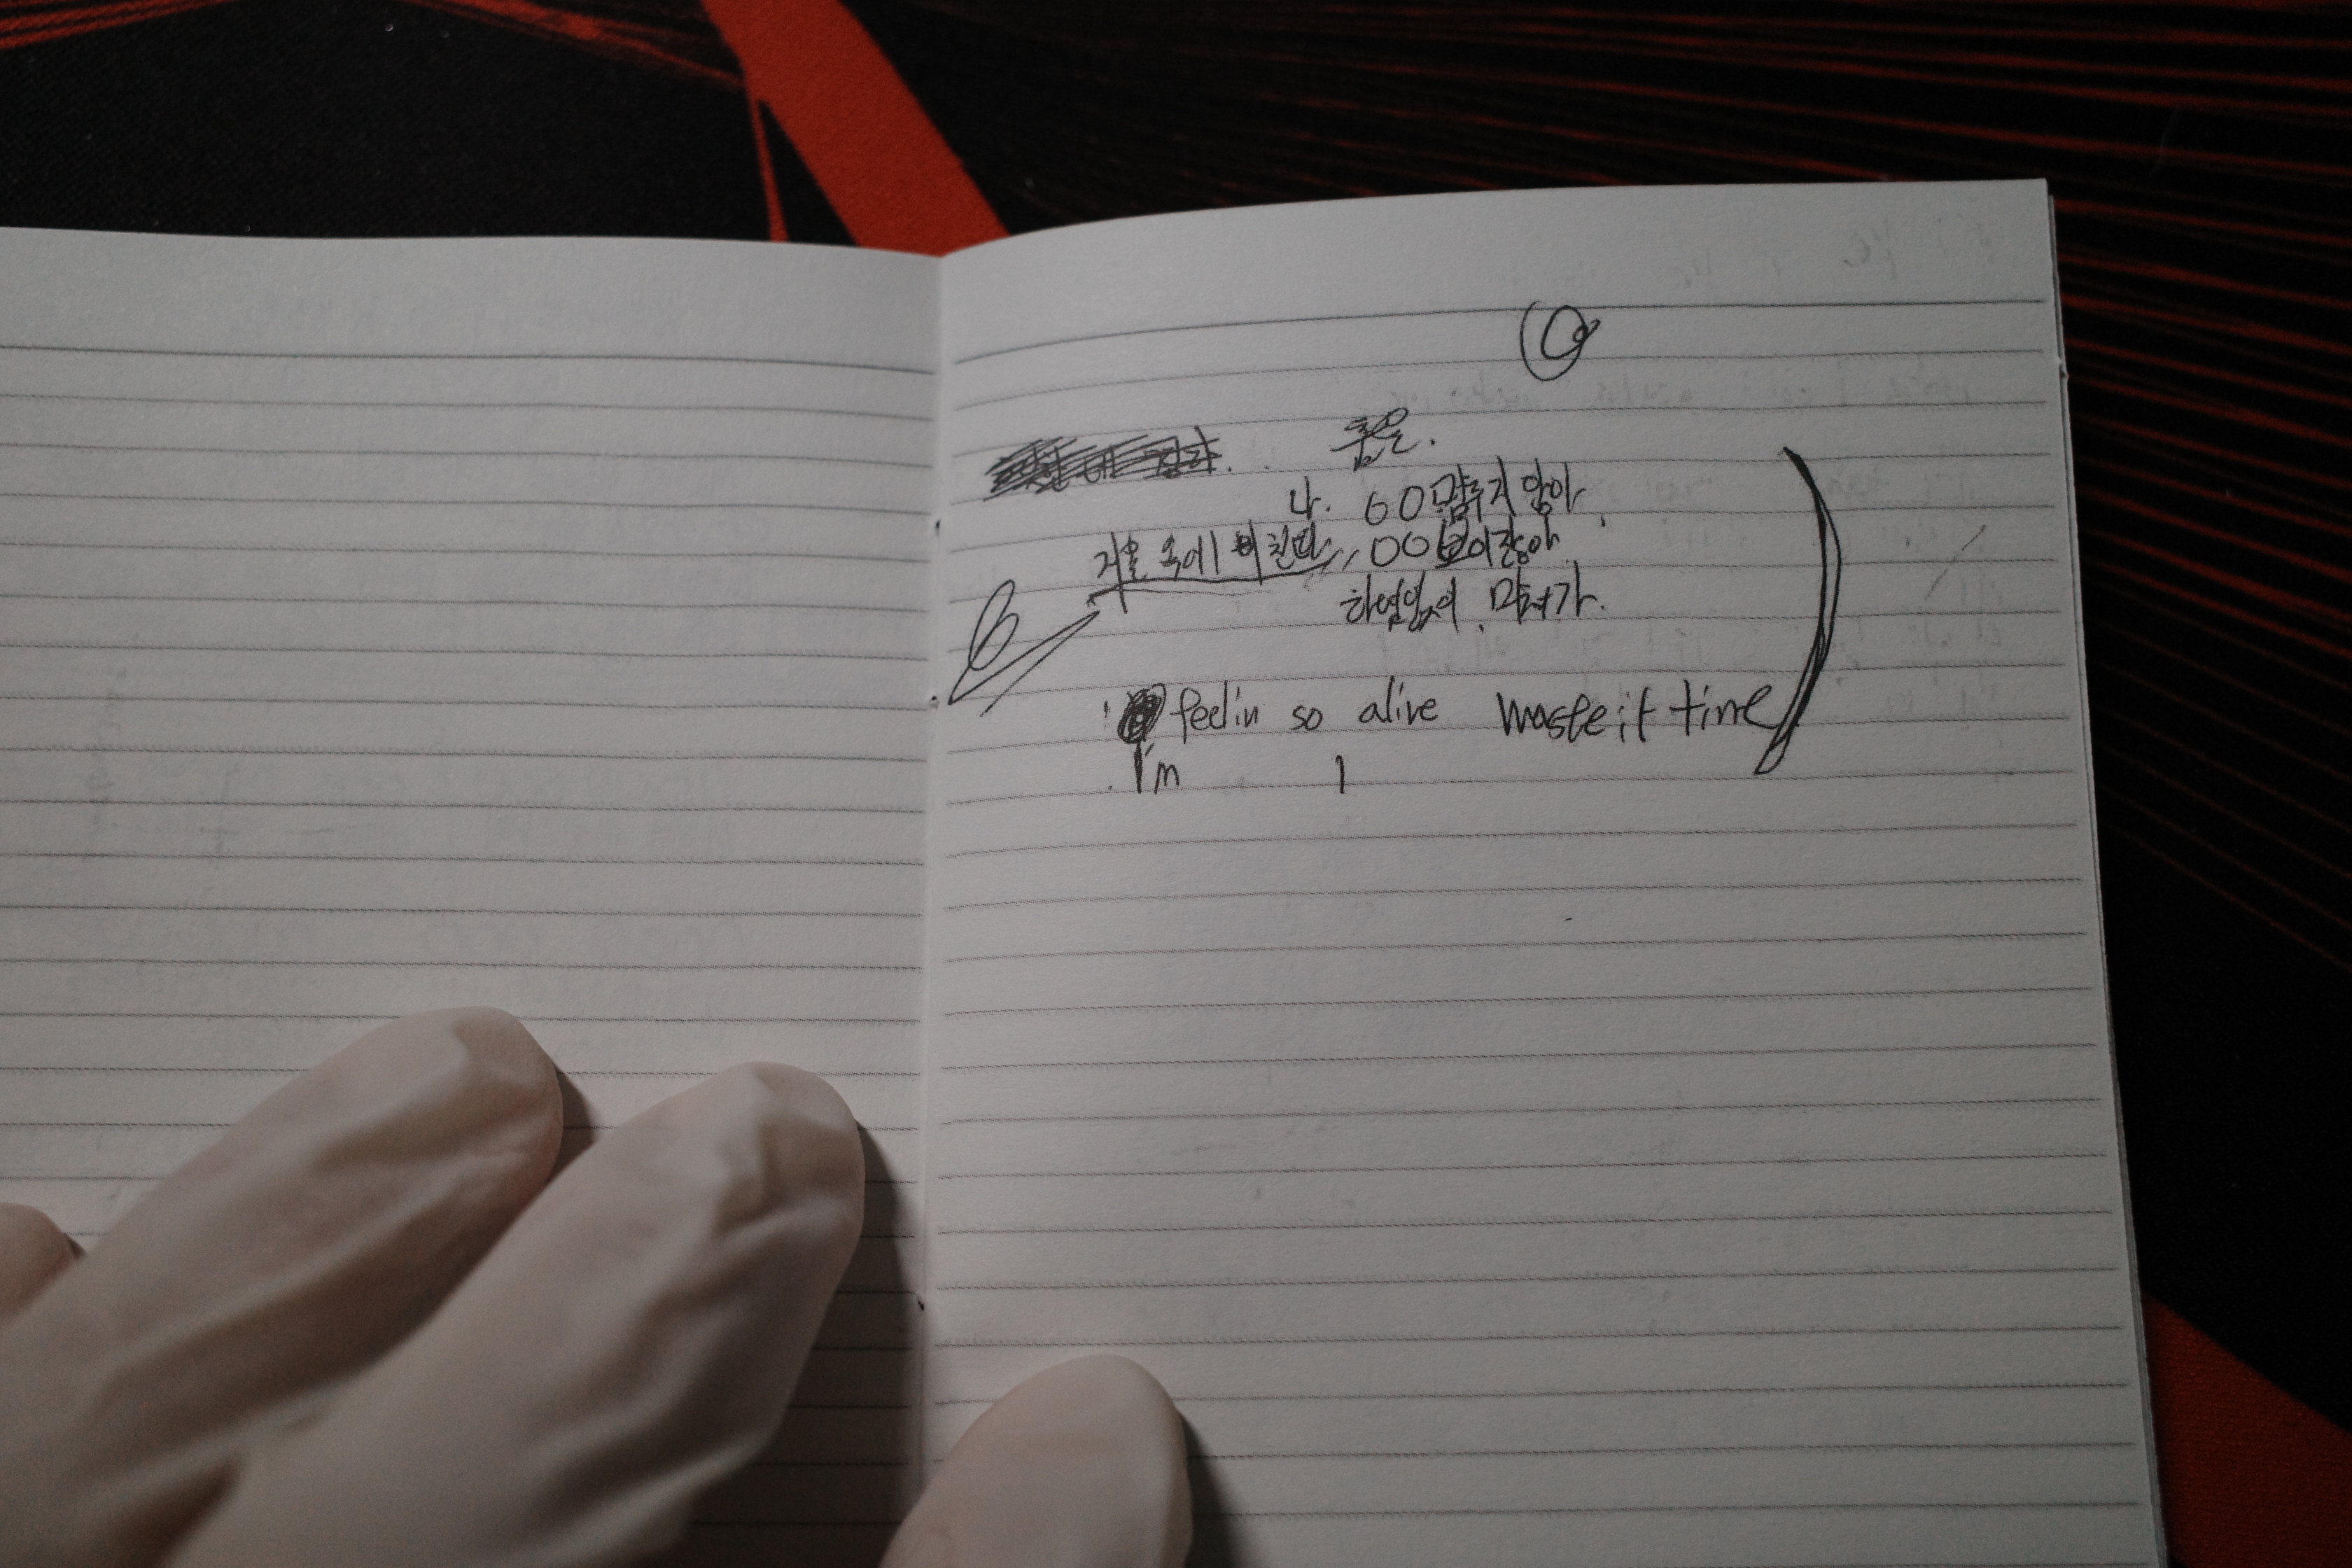 나. OO 멈추지 않아
거울 속에 비친다, OO 보이잖아
하염없이. 망쳐가.
feelin so alive waste it time
I'm